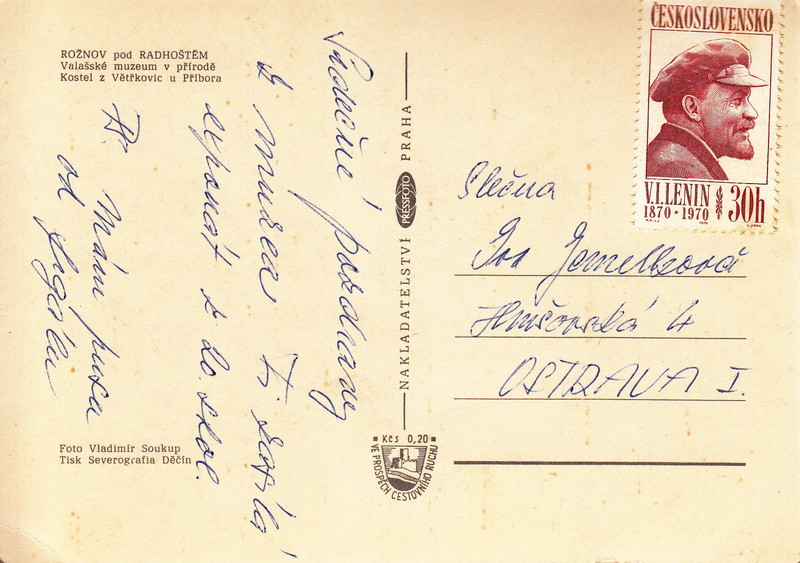 ROŽNOV pod RADHOŠTĚM
Valašské muzeum v přírodě
Kostel z Větřkovic u Příbora
Srdečné pozdravy
z muzea Ti
z 20. stol.
Mám pusu
od
Foto Vladimír Soukup
Tisk Severografia Děčín
NAKLADATELSTVÍ PRESSFOTO PRAHA
Kčs 0,20
VE PROSPĚCH CESTOVNÍHO RUCHU
ČESKOSLOVENSKO
V.I.LENIN
1870 · 1970
30h
Slečna
Iva Jemelková
4
OSTRAVA I.